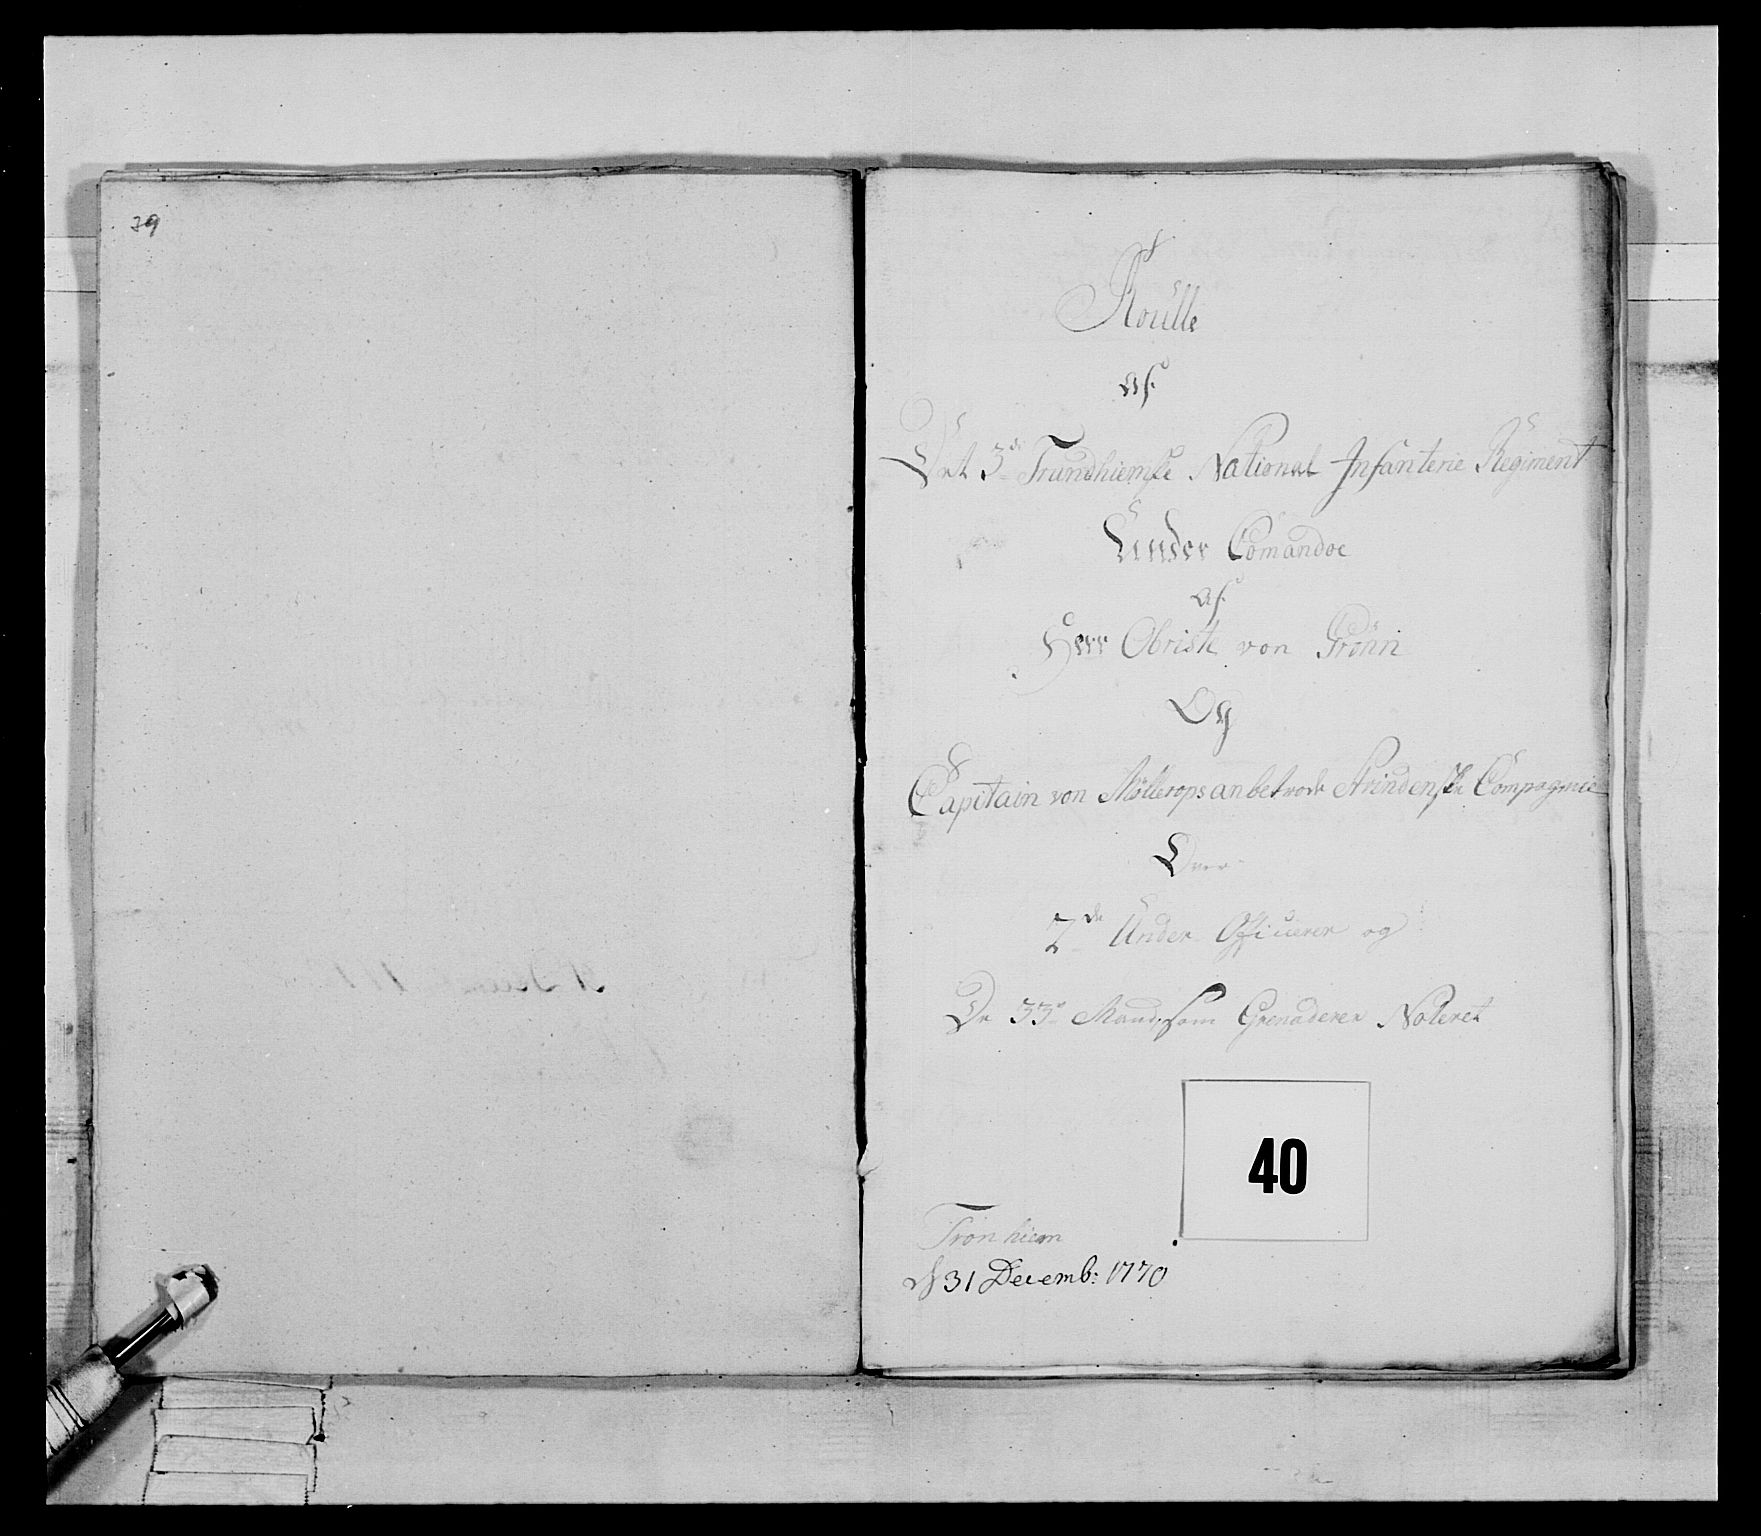 39
Roulle
af
Det 3de Trundhiemske National Infanterie Regiment
Under Comandoe
af
Herr Obriste von Grönn
Og
Capitain von Möllerops anbetroede Strindenske Compagnie
Over
2de Under Officerer og
De 33e Mand, som Grenaderer Noteret
40
Tronhiem
d 31 Decemb: 1770